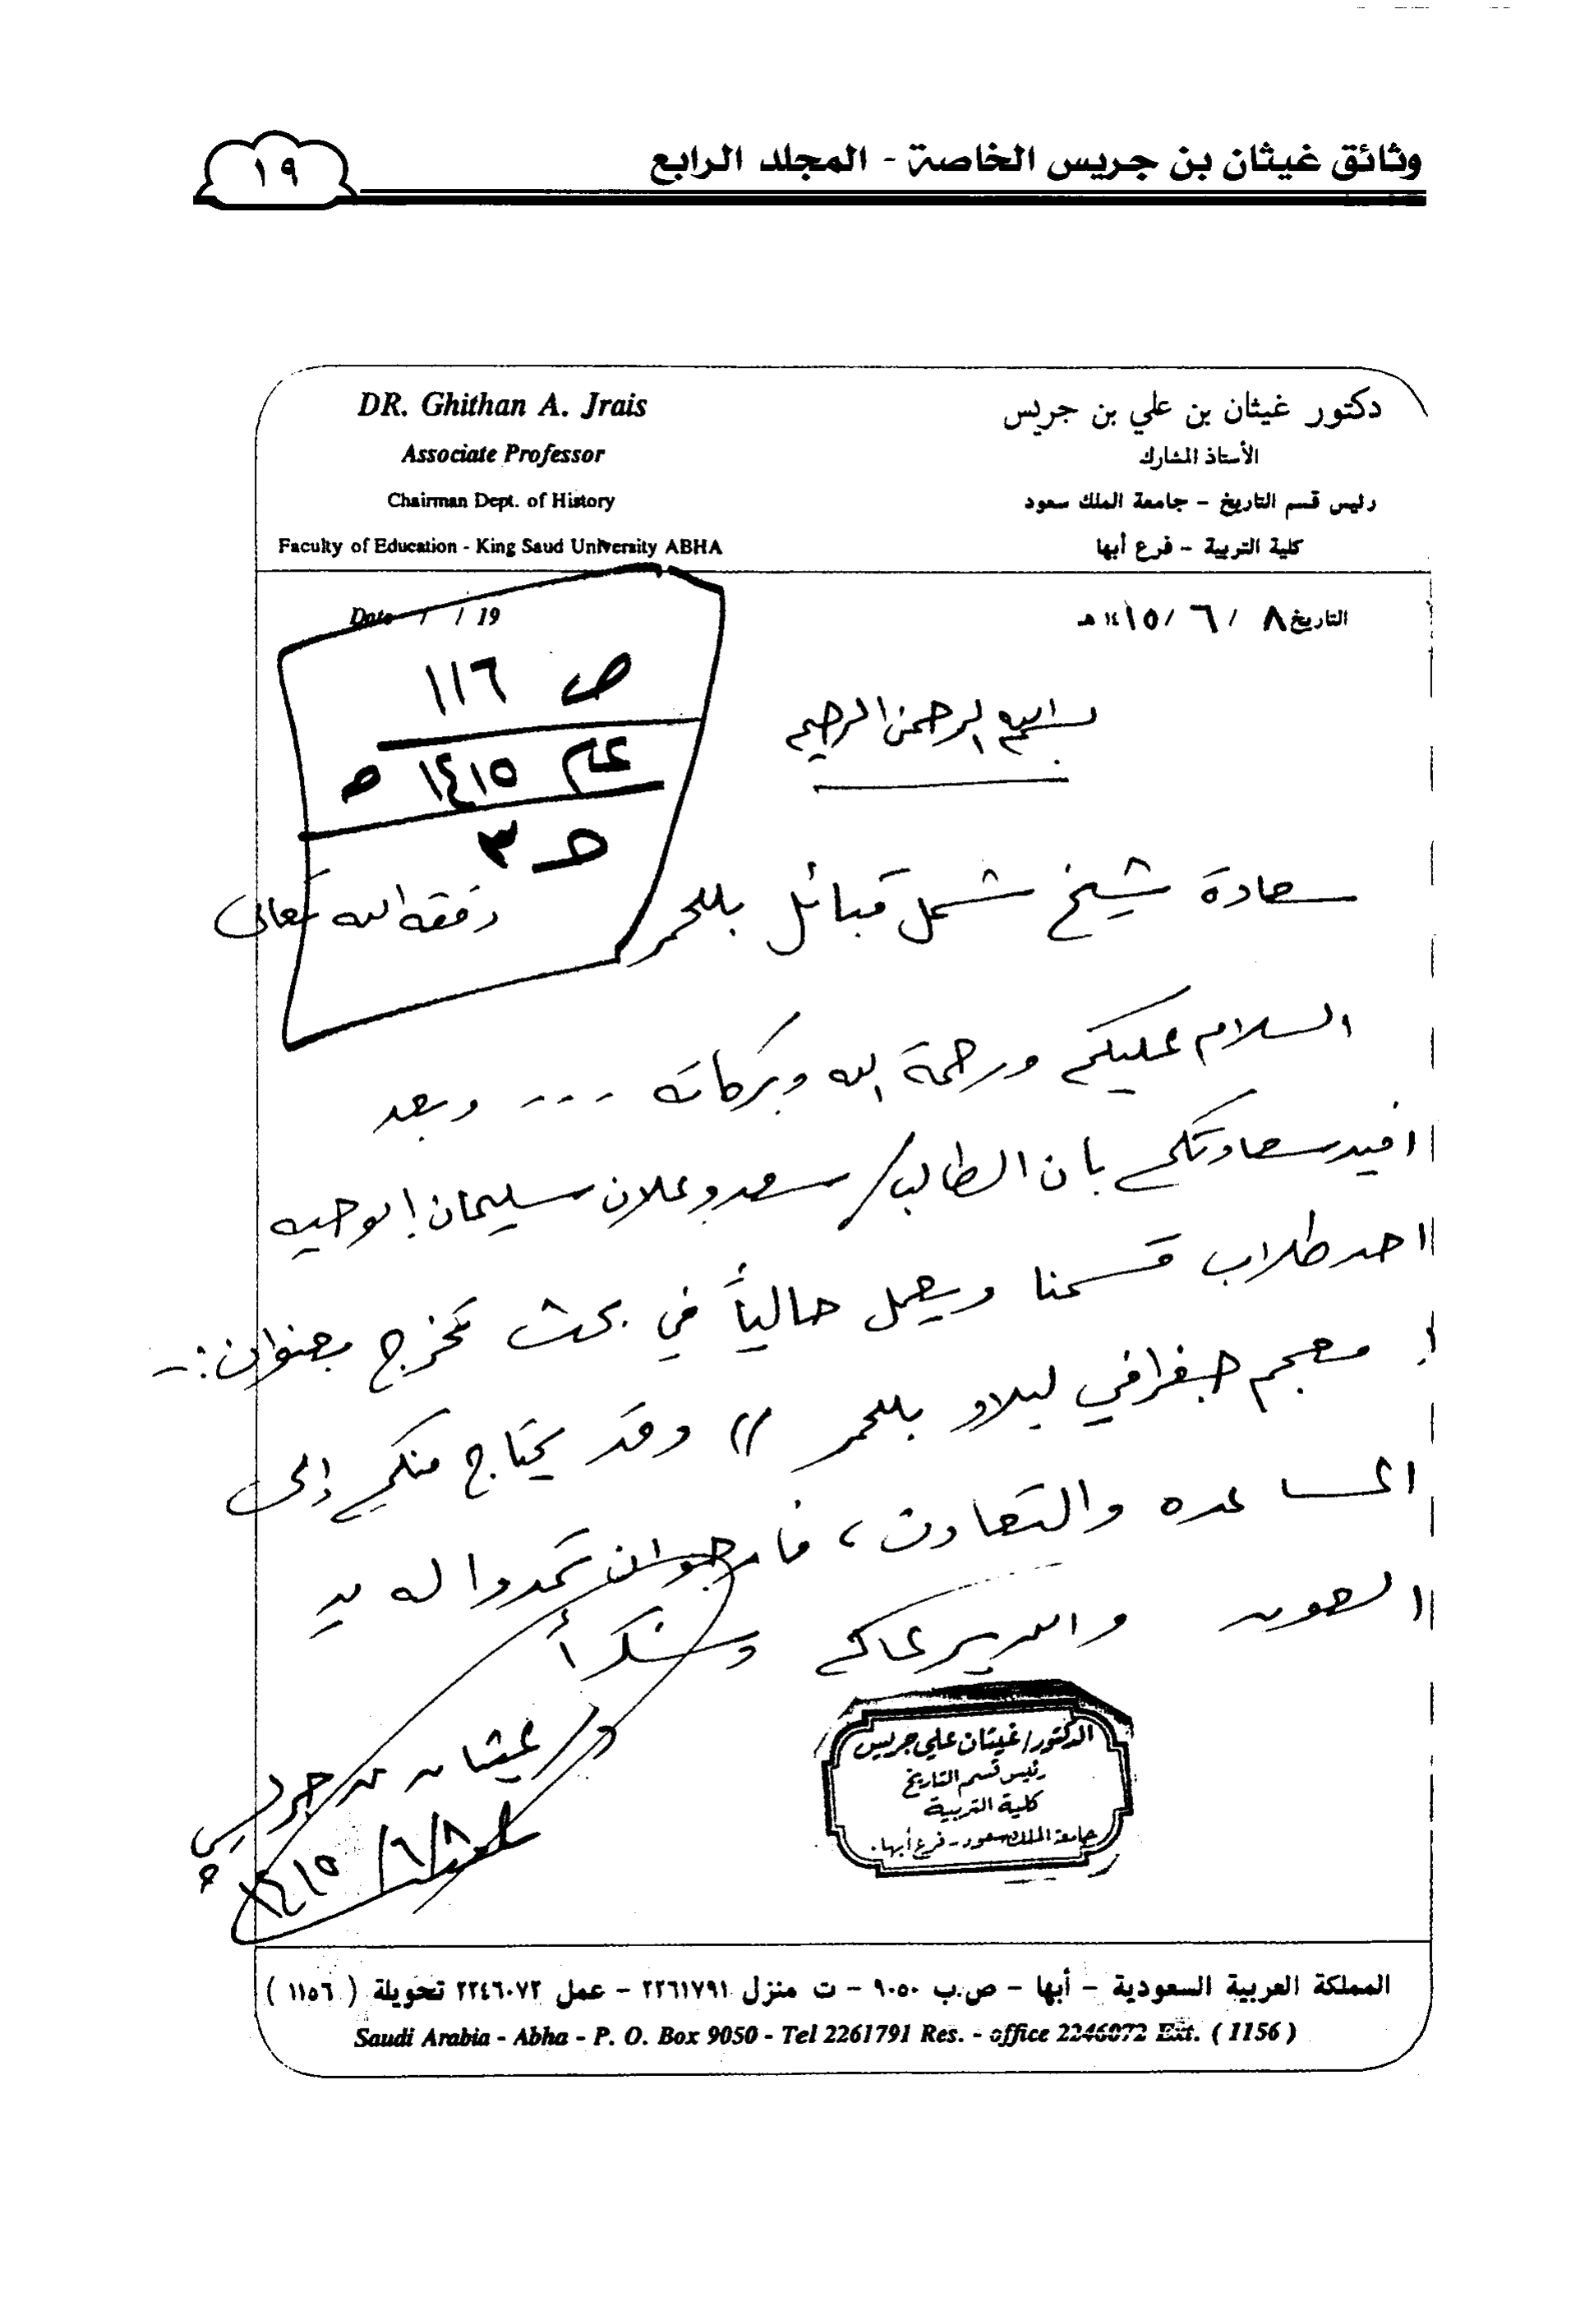 وثائق غيثان بن جريس الخاصة - المجلد الرابع
١٩
دكتور غيثان بن علي بن جريس
الأستاذ المشارك
رئيس قسم التاريخ - جامعة الملك سعود
كلية التربية - فرع أبها
DR. Ghithan A. Jrais
Associate Professor
Chairman Dept. of History
Faculty of Education - King Saud University ABHA
التاريخ ٨ / ٦ / ١٤١٥ هـ
Date / / 19
ص ١١٦
عام ١٤١٥ هـ
حـ ٣
بسم الله الرحمن الرحيم
سعادة شيخ شمل قبائل بللحمر وفقه الله تعالى
السلام عليكم ورحمة الله وبركاته - - - وبعد
افيد سعادتكم بان الطالب / سعد وعلان سليمان
احد طلاب قسمنا ويعمل حالياً في بحث تخرج بعنوان :-
معجم جغرافي لبلاد بللحمر )) وقد يحتاج منكم إلى
المساعده والتعاون ، فارجو ان تمدوا له يد
العون والله يرعاكم وشكراً
د/ غيثان بن جريس
٨/٦/١٤١٥ هـ
الدكتور/ غيثان علي جريس
رئيس قسم التاريخ
كلية التربية
جامعة الملك سعود - فرع أبها.
المملكة العربية السعودية - أبها - ص.ب ٩٠٥٠ - ت منزل ٢٢٦١٧٩١ - عمل ٢٢٤٦٠٧٢ تحويلة ( ١١٥٦ )
Saudi Arabia - Abha - P. O. Box 9050 - Tel 2261791 Res. - office 2246072 Ext. ( 1156 )